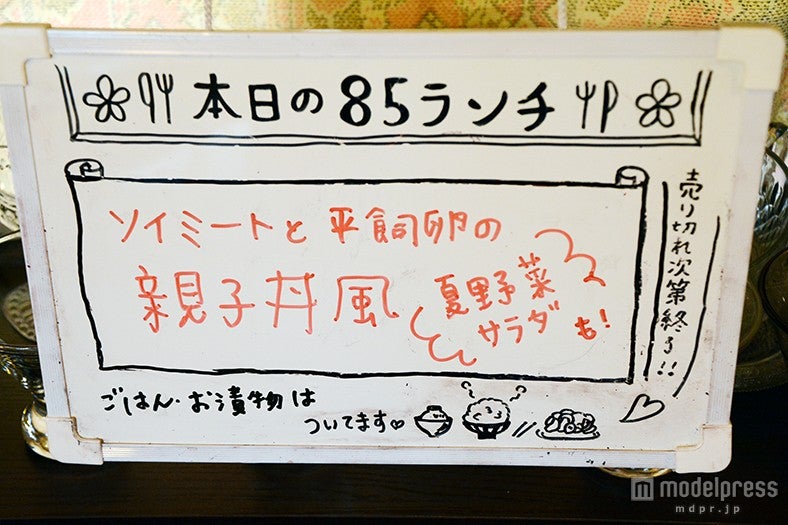 本日の85ランチ
ソイミートと平飼卵の
親子丼風
夏野菜
サラダも!
売り切れ次第終了!!
ごはん・お漬物は
ついてます♡
modelpress
mdpr.jp